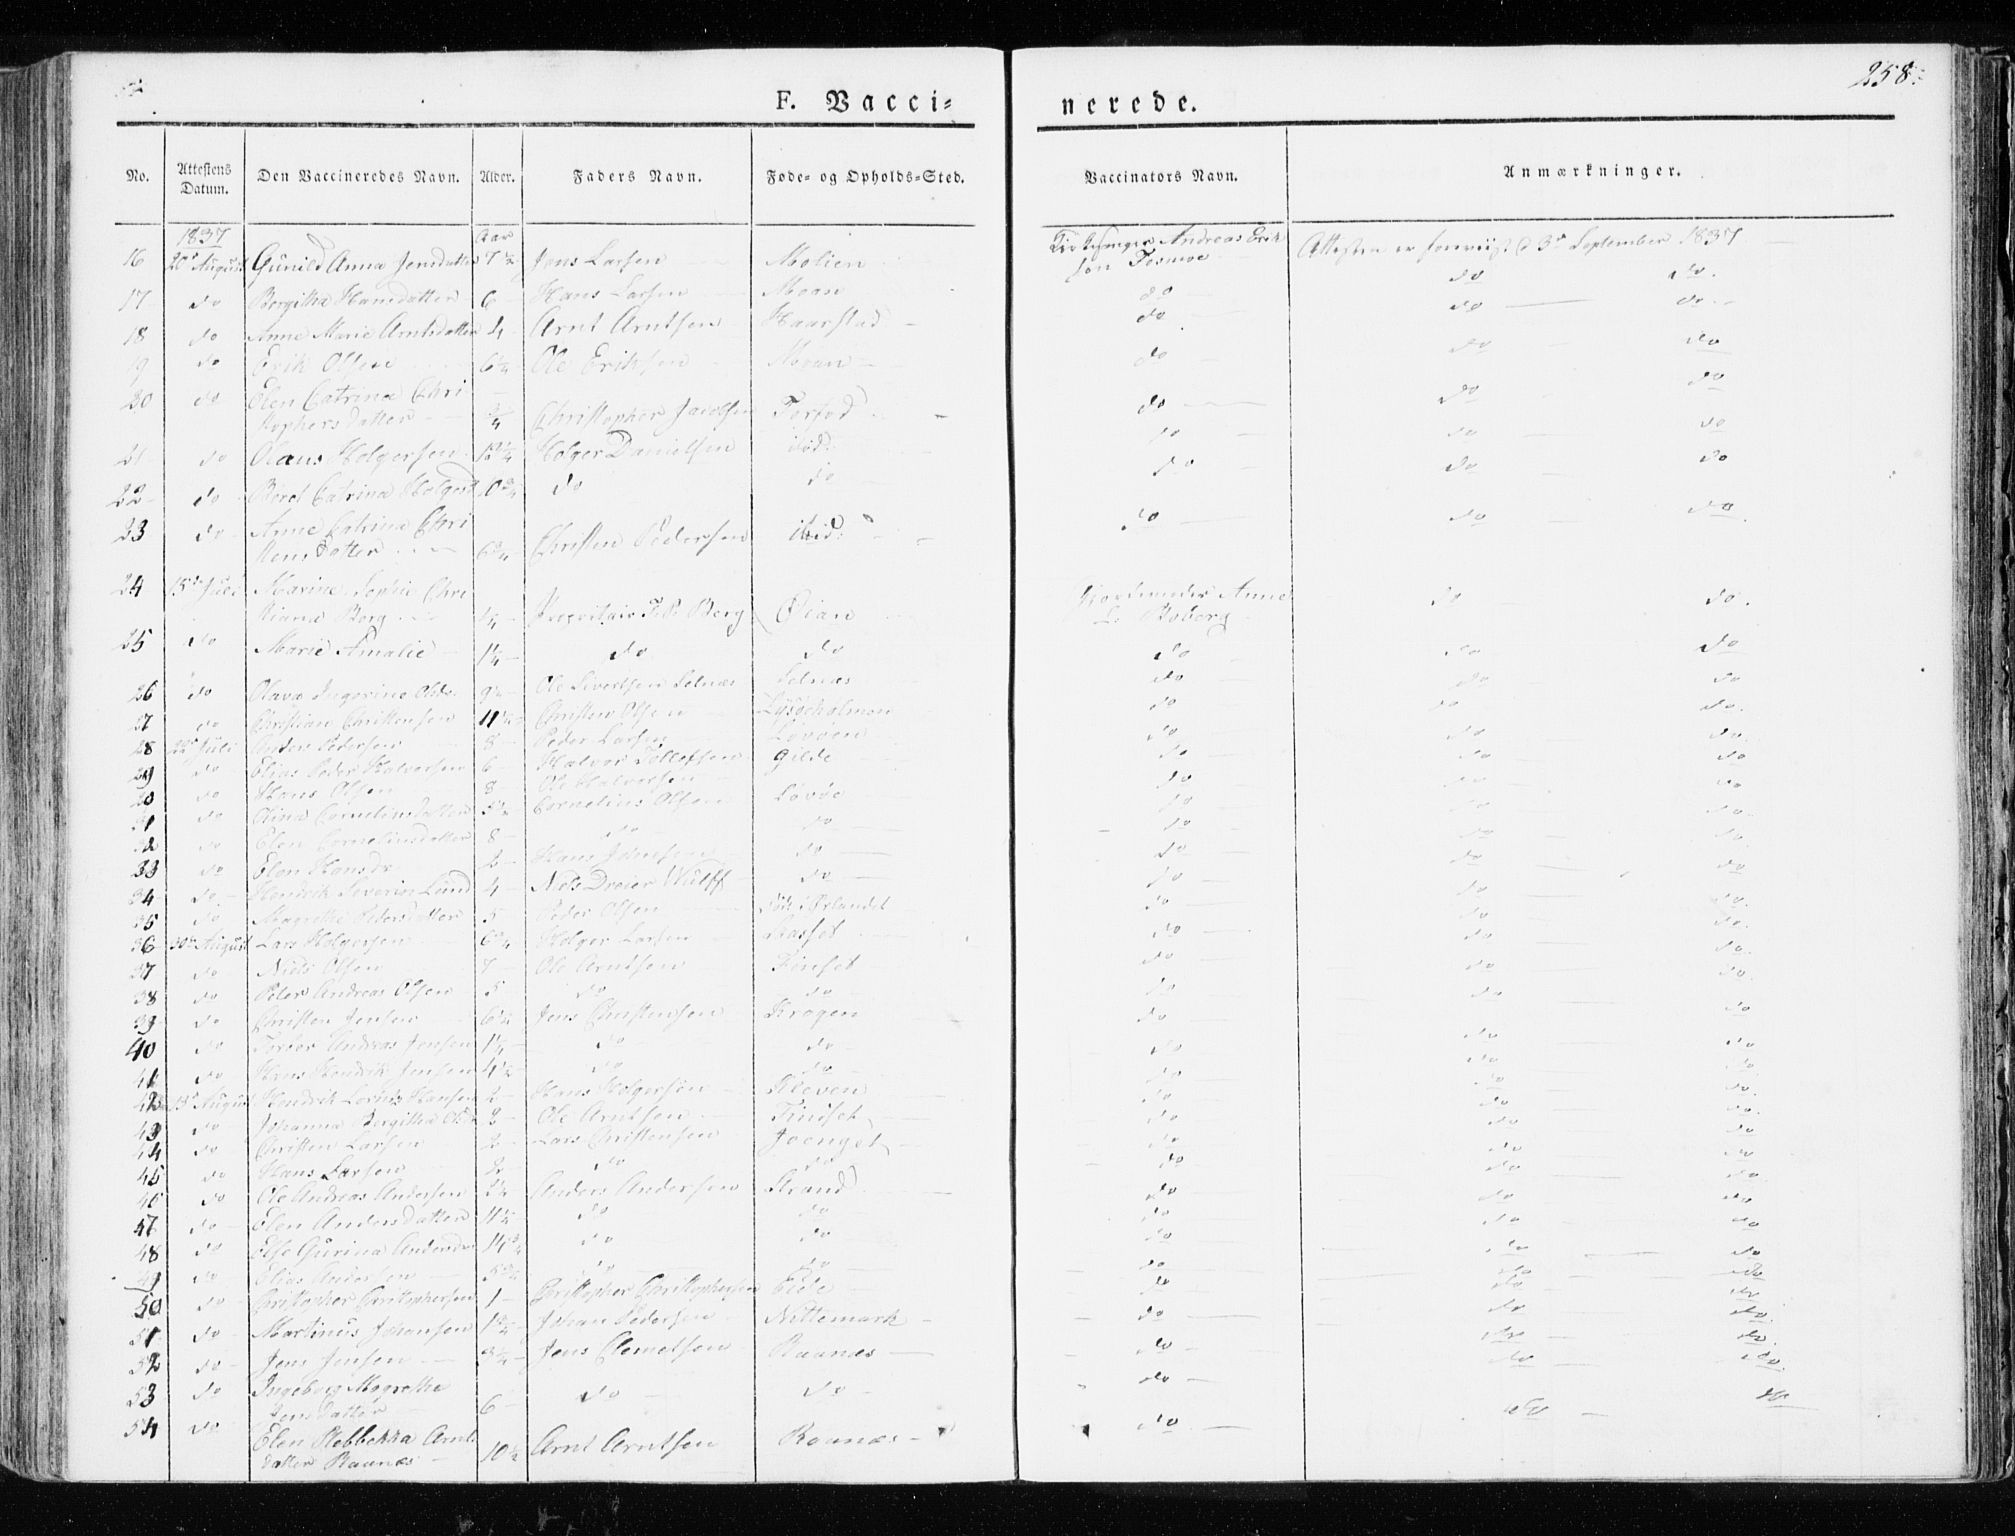 258.
F. Vacci=
nerede.
No.
Attestens Datum.
Den Vaccineredes Navn.
Alder.
Faders Navn.
Føde- og Opholds-Sted.
Vaccinators Navn.
Anmærkninger.
1837
Aar
16 August Gunild Anna Jensdatter 7½ Jens Larsen Molien Kirkesanger Andreas Erik Attesten er foreviist d. 3d September 1837
sen
17 do Bergitha Hansdatter 6 Hans Larsen Moan do do do.
18 do Anne Marie Arntsdatter 4 Arnt Arntsen Haarstad do do do
19 do Erik Olsen 6¼ Ole Eriksen Moan do do do
20 do Elen Catrina Chri
stophersdatter ¾ Christopher Jacobsen do do do
21 do Olaus Holgersen Holger Danielsen ibid: do do do
22 do Beret Catrina Holgersd 10¾ do do do do do
23 do Anne Catrina Chri
stensdatter 6¾ Christen Pedersen ibid: do do do.
24 15de Juli Marine Sophie Chri
stiane Berg Berg Øian Gjordemoder Anne do do.
L. Boberg
25 do Marie Amalie 1¼ do do do do do
26 do Olava Ingerine Olsd. 9½ Ole Sivertsen Selnæs Selnæs do do do
27 do Christian Christensen 11½ Christen Olsen Lysøeholmen do do do.
28 22de Juli Anders Pedersen 8 Peder Larsen do do do.
29 do Elias Peder Halvorsen 6 Halvor Tollefsen Gilde do do do
30 do Hans Olsen 8 Ole Halvorsen do do do
31 do Olina Corneliusdatter 5½ Cornelius Olsen Løvøe do do do
32 do Elen Corneliusdatter 8 do do do do do
33 do Elen Hansdr 2 Hans Johnsen do do do do
34 do Hendrik Severin Lund 4 Niels Dreier Wulff do do do do
35 do Magrethe Pedersdatter 5 Peder Olsen i Ørlandet do do do
36 30te August Lars Holgersen 6¾ Holger Larsen Rasset do do do
37 do Niels Olsen 7 Ole Arntsen Finset do do do
38 do Peter Andreas Olsen 5 do do do do do
39 do Christen Jensen 6¼ Jens Christensen Krogen do do do
40 do Andreas Jensen 1¼ do do do do do
41 do Hans Hendrik Jensen 4½ do do do do do
42 13de August Hendrik Hansen 2 Hans Holgersen Kleven do do do
43 do Johanna Bergitha Olsd 2 Ole Arntsen Finset do do do
44 do Christen Larsen 2 Lars Christensen Joenget do do do
45 do Hans Larsen 2 do do do do do
46 do Ole Andreas Andersen 2¼ Anders Andersen Strand do do do
47 do Elen Andersdatter 11½ do do do do do
48 do Else Gurina Andersdr 14¾ do do do do do
49 do Elias Andersen 5¾ do do do do do
50 do Christopher Christophersen 1 Christopher Christophersen Eide do do do
51 do Martinus Johansen 1¾ Johan Pedersen Nittemark do do do.
52 do Jens Jensen 3¼ Jens Clemetsen Raanæs do do do.
53 do Ingeborg Magrethe
Jensdatter 6 do do do do do
54 do Elen Rebbekka Arnts
datter Raanæs 10½ Arnt Arntsen Raanæs do do do